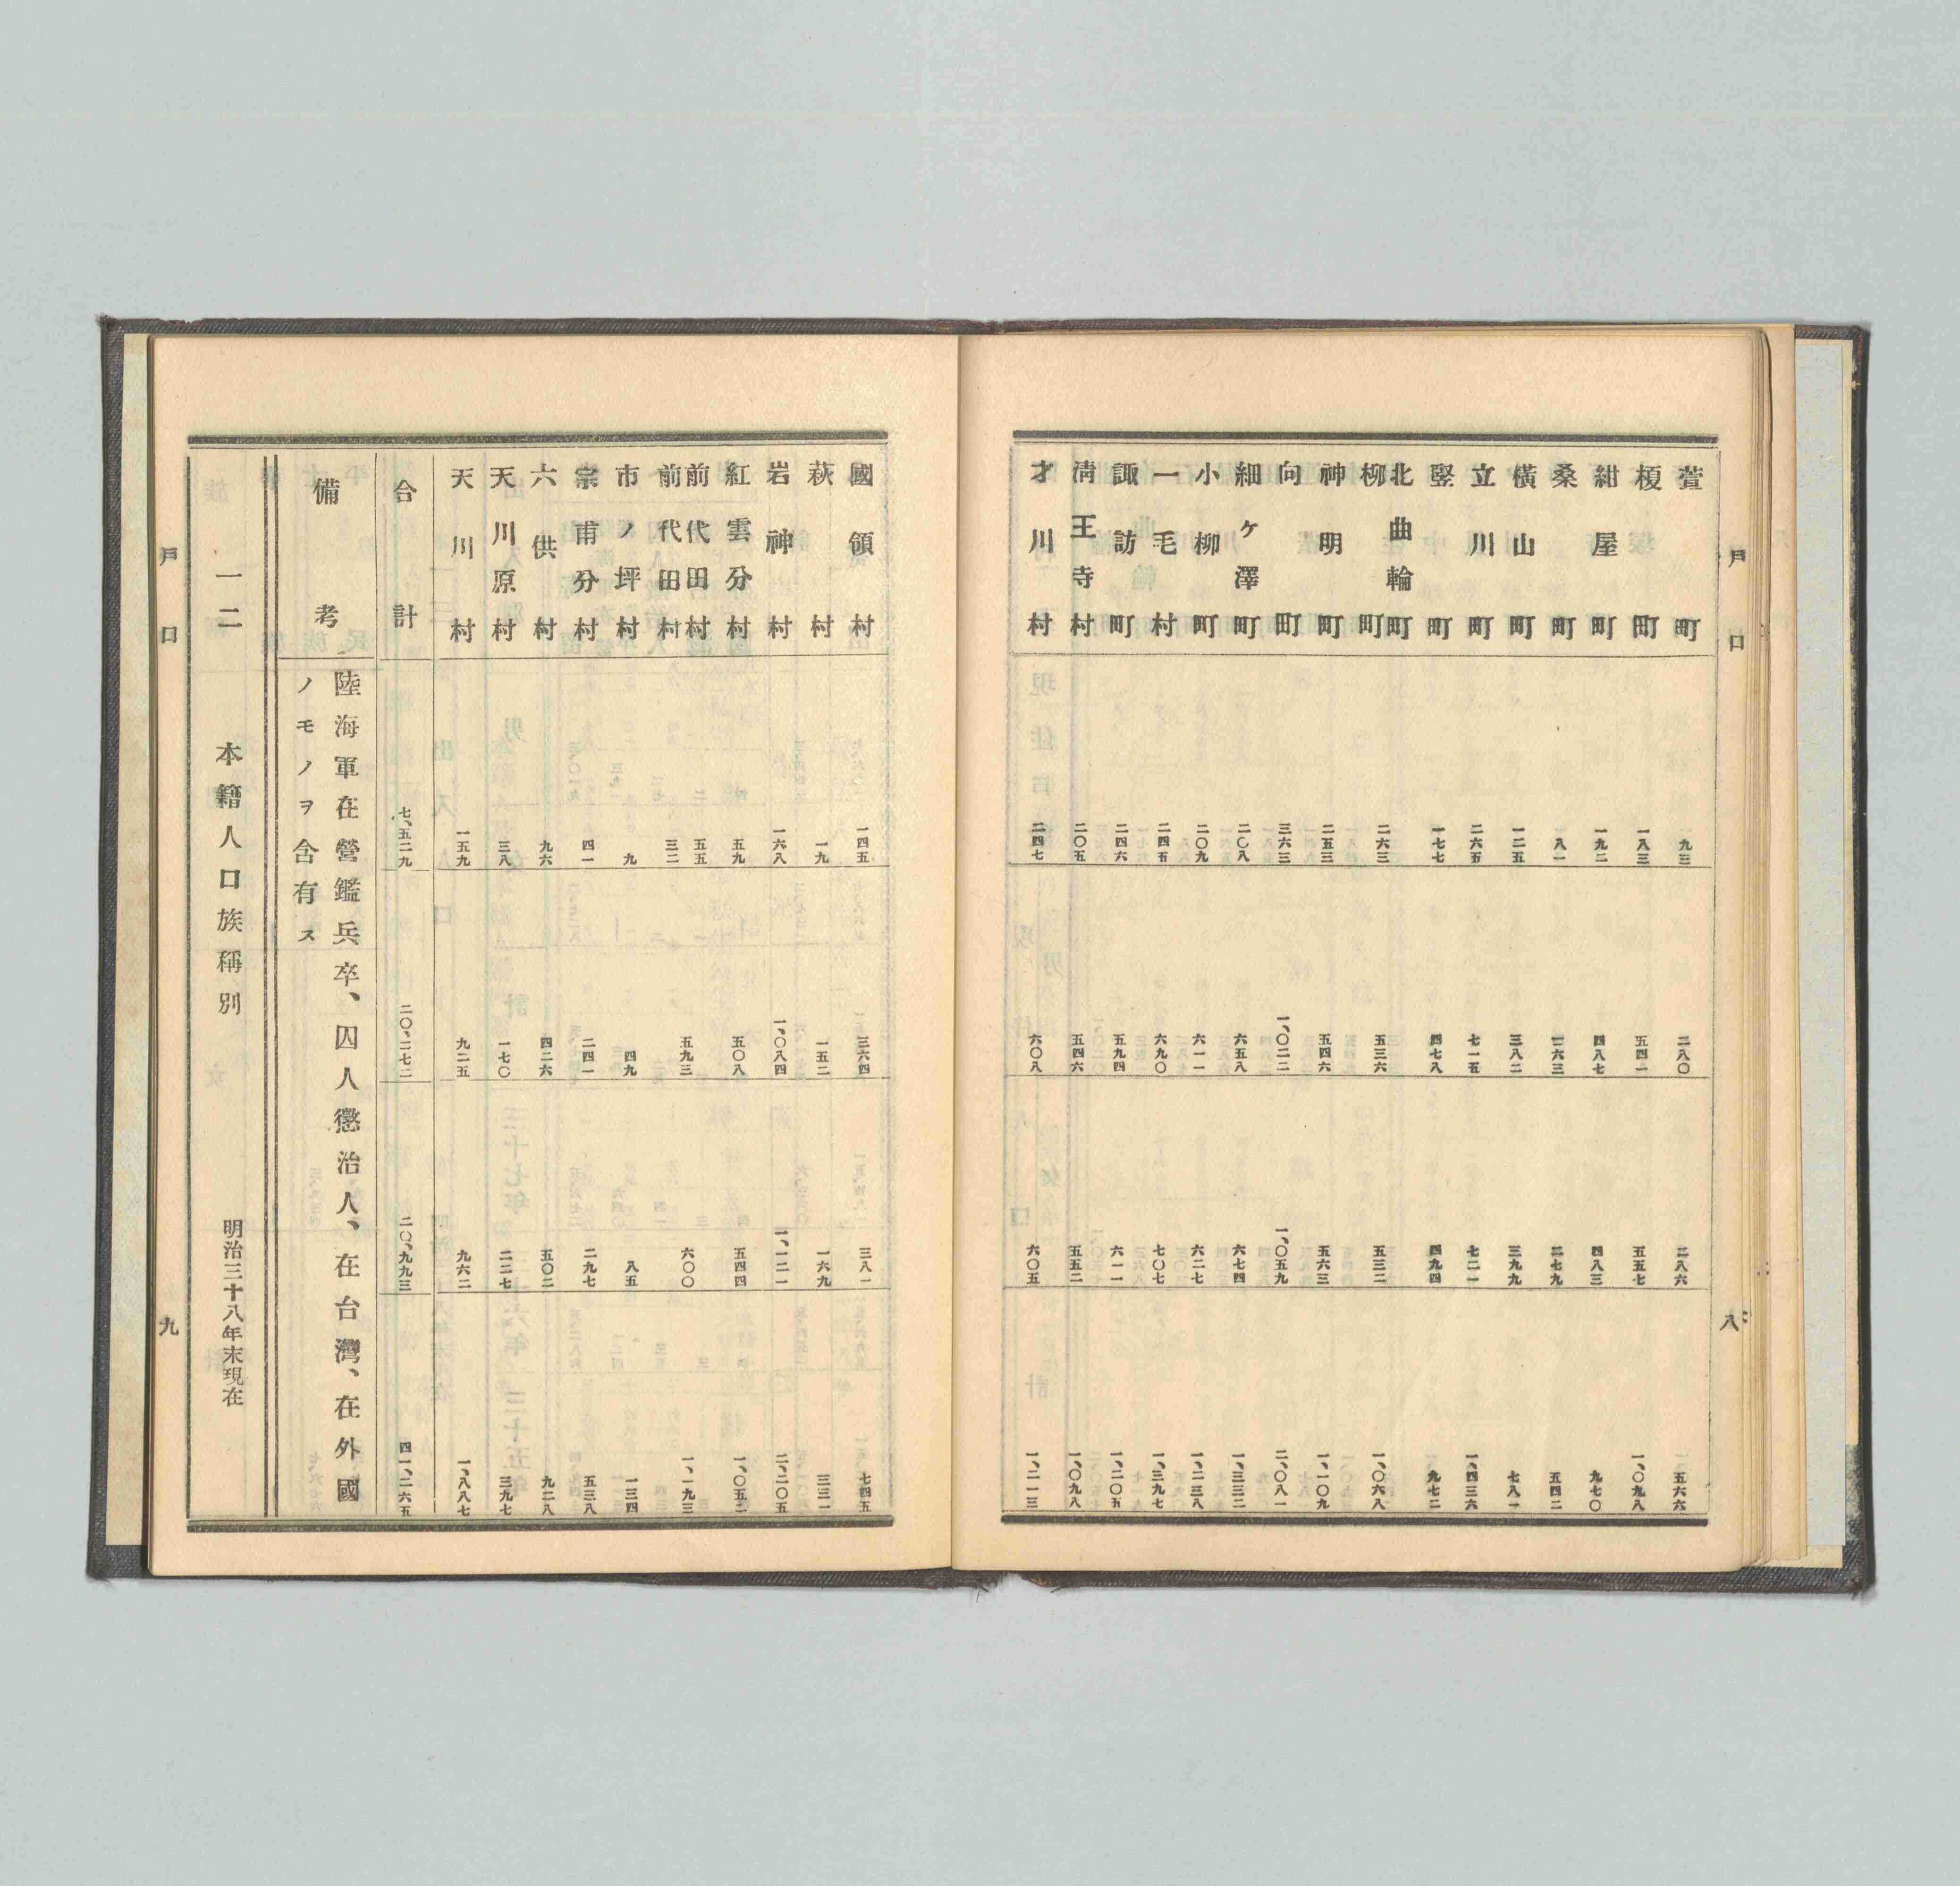 戸口
八
萱町 九三 二八〇 二八六 五六六
榎町 一八三 五四一 五五七 一、〇九八
紺屋町 一九二 四八七 四八三 九七〇
桑町 八一 二六三 二七九 五四二
横山町 一二五 三八二 三九九 七八一
立川町 二六五 七一五 七二一 一、四三六
竪町 一七七 四七八 四九四 九七二
北曲輪町
柳町 二六三 五三六 五三二 一、〇六八
神明町 二五三 五四六 五六三 一、一〇九
向町 三六三 一、〇二二 一、〇五九 二、〇八一
細ヶ澤町 二〇八 六五八 六七四 一、三三二
小柳町 二〇九 六一一 六二七 一、二三八
一毛村 二四五 六九〇 七〇七 一、三九七
諏訪町 二四六 五九四 六一一 一、二〇五
清王寺村 二〇五 五四六 五五二 一、〇九八
才川村 二四七 六〇八 六〇五 一、二一三
國領村 一四五 三六四 三八一 七四五
萩村 一九 一五二 一六九 三二一
岩神村 一六八 一、〇八四 一、一二一 二、二〇五
紅雲分村 五九 五〇八 五四四 一、〇五二
前代田村 五五
前代田村 三二 五九三 六〇〇 一、一九三
市ノ坪村 九 四九 八五 一三四
宗甫分村 四一 二四一 二九七 五三八
六供村 九六 四二六 五〇二 九二八
天川原村 三八 一七〇 二二七 三九七
天川村 一五九 九二五 九六二 一、八八七
合計 七、五二九 二〇、二七二 二〇、九九三 四一、二六五
備考 陸海軍在營鑑兵卒、囚人懲治人、在台灣、在外國
ノモノヲ含有ス
一二 本籍人口族稱別 明治三十八年末現在
戸口
九